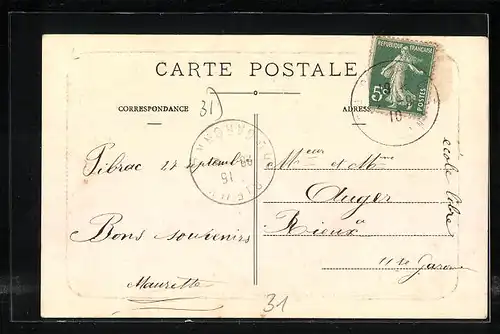 REPUBLIQUE FRANÇAISE
5c
POSTES
CARTE POSTALE
CORRESPONDANCE
ADRESSE
31
Pibrac 27 septembre
Bons souvenirs
Maurette
Mr et Mme
Auger
à
Rieux
Hte Garonne
école libre
31